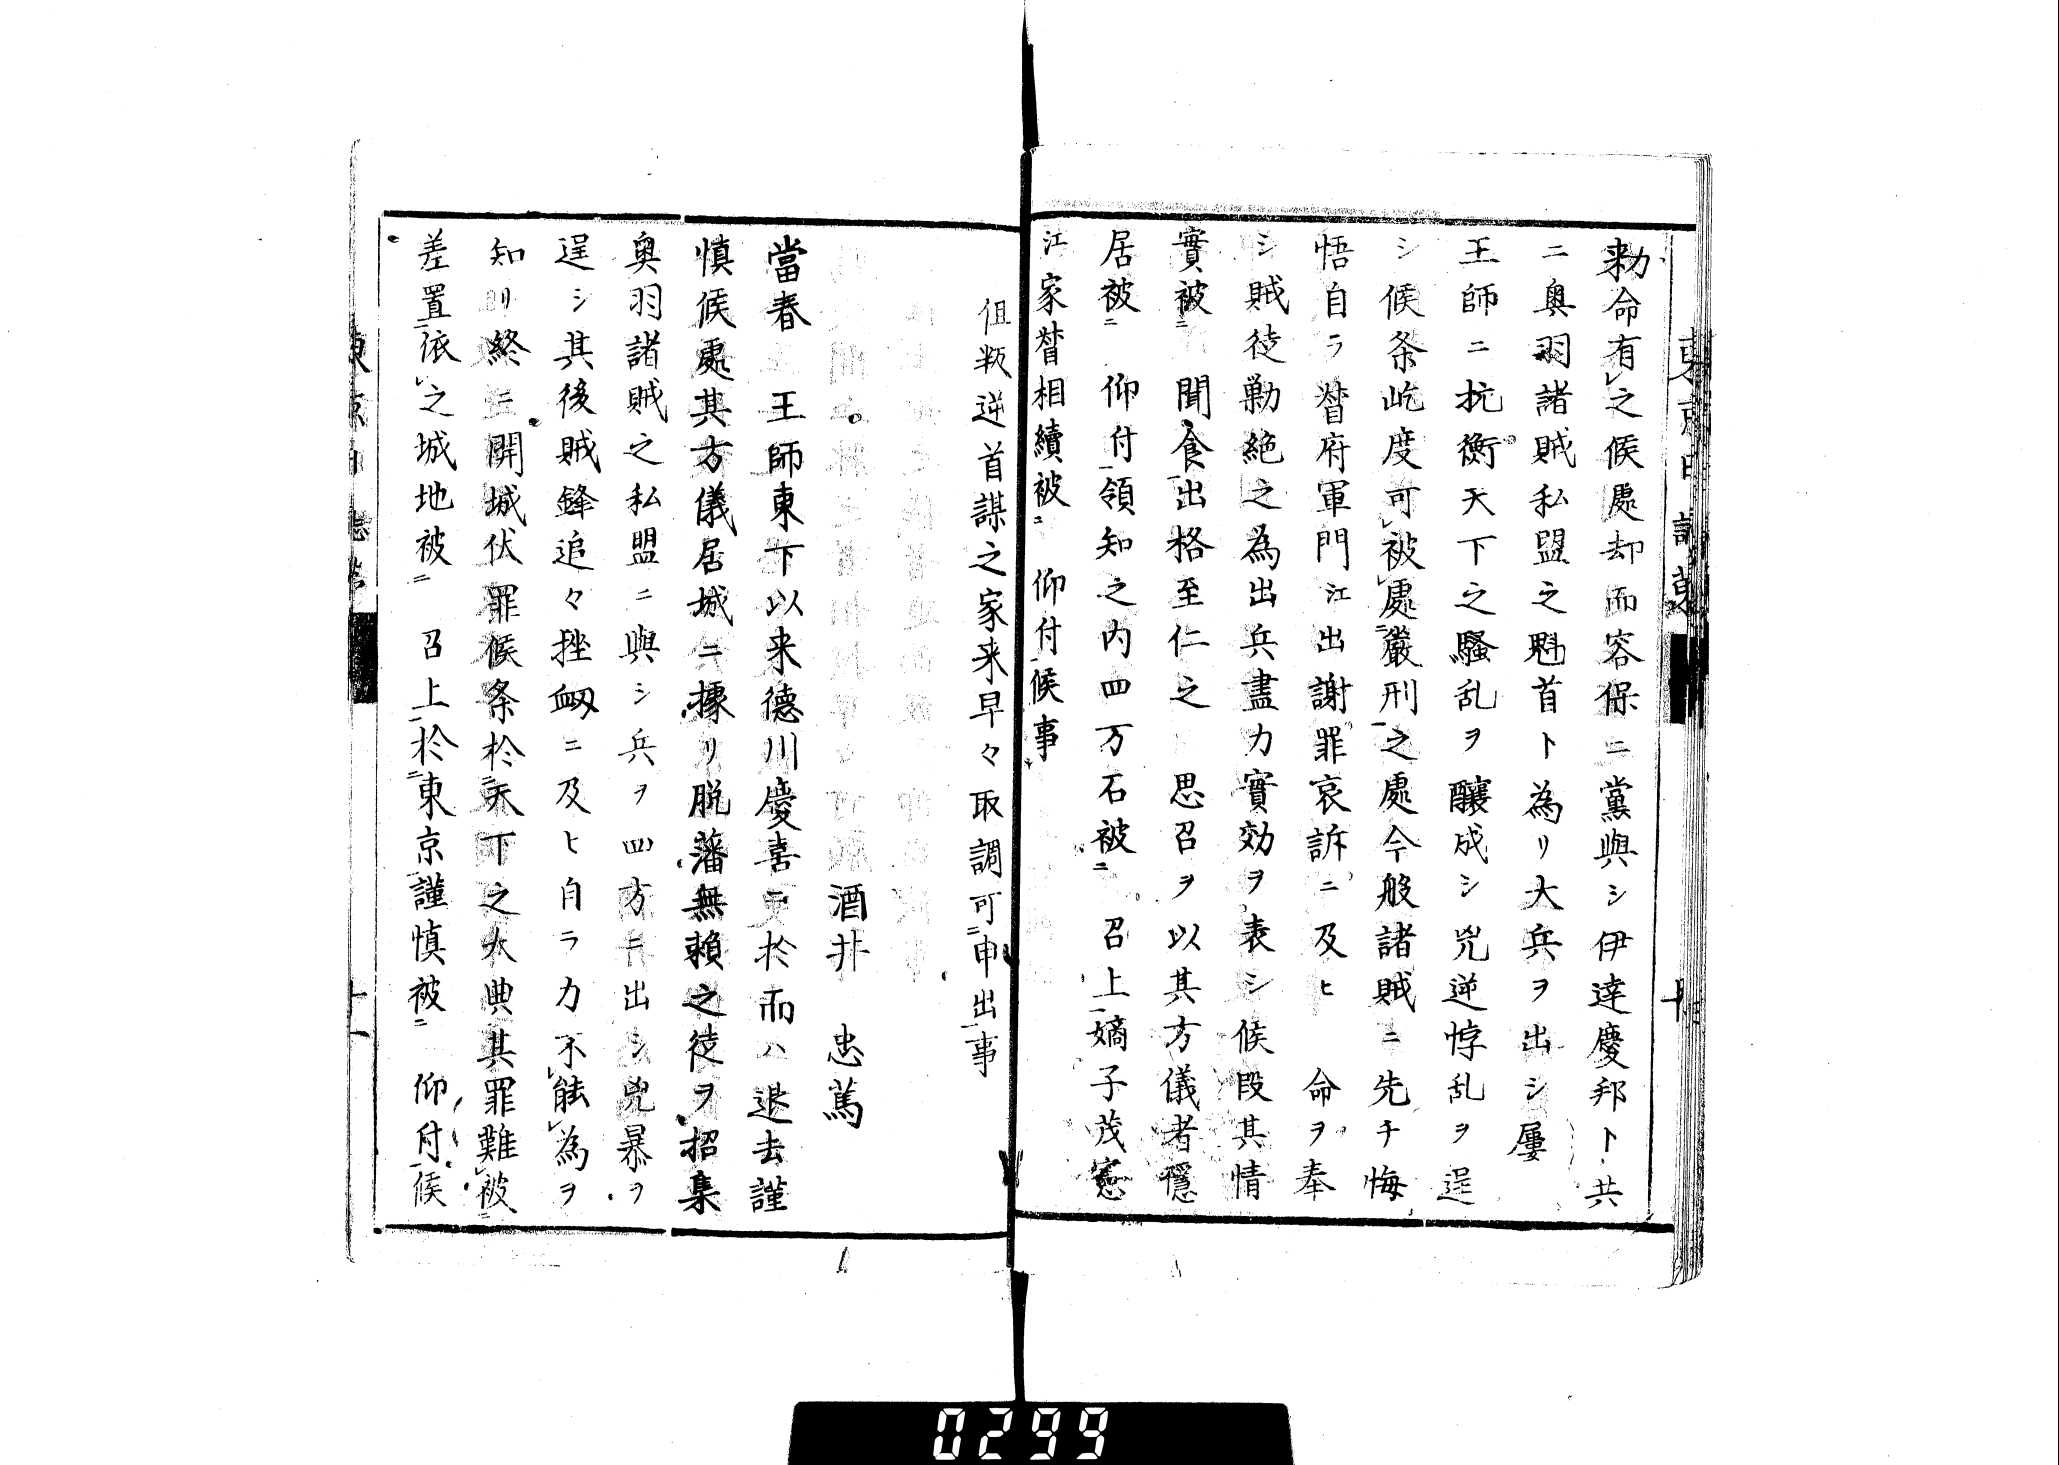 勅命有之候處却而容保ニ黨與シ伊達慶邦ト共
ニ奥羽諸賊私盟之魁首ト為リ大兵ヲ出シ屢
王師ニ抗衡天下之騷乱ヲ釀成シ兇逆悖乱ヲ逞
シ候条屹度可被處嚴刑之處今般諸賊ニ先チ悔
悟自ラ督府軍門江出謝罪哀訴ニ及ヒ 命ヲ奉
シ賊徒勦絶之為出兵盡力實効ヲ表シ候段其情
實被ニ 聞食出格至仁之 思召ヲ以其方儀者隱
居被ニ 仰付領知之内四万石被ニ 召上嫡子茂憲
江家督相續被ニ 仰付候事
但叛逆首謀之家来早々取調可申出事
酒井 忠篤
當春 王師東下以来德川慶喜ニ於而ハ退去謹
慎候處其方儀居城ニ據リ脱藩無頼之徒ヲ招集
奥羽諸賊之私盟ニ與シ兵ヲ四方ニ出シ兇暴ヲ
逞シ其後賊鋒追々挫衂ニ及ヒ自ラ力不能為ヲ
知リ終ニ開城伏罪候条於天下之大典其罪難被
差置依之城地被ニ 召上於東京謹慎被ニ 仰付候
0299